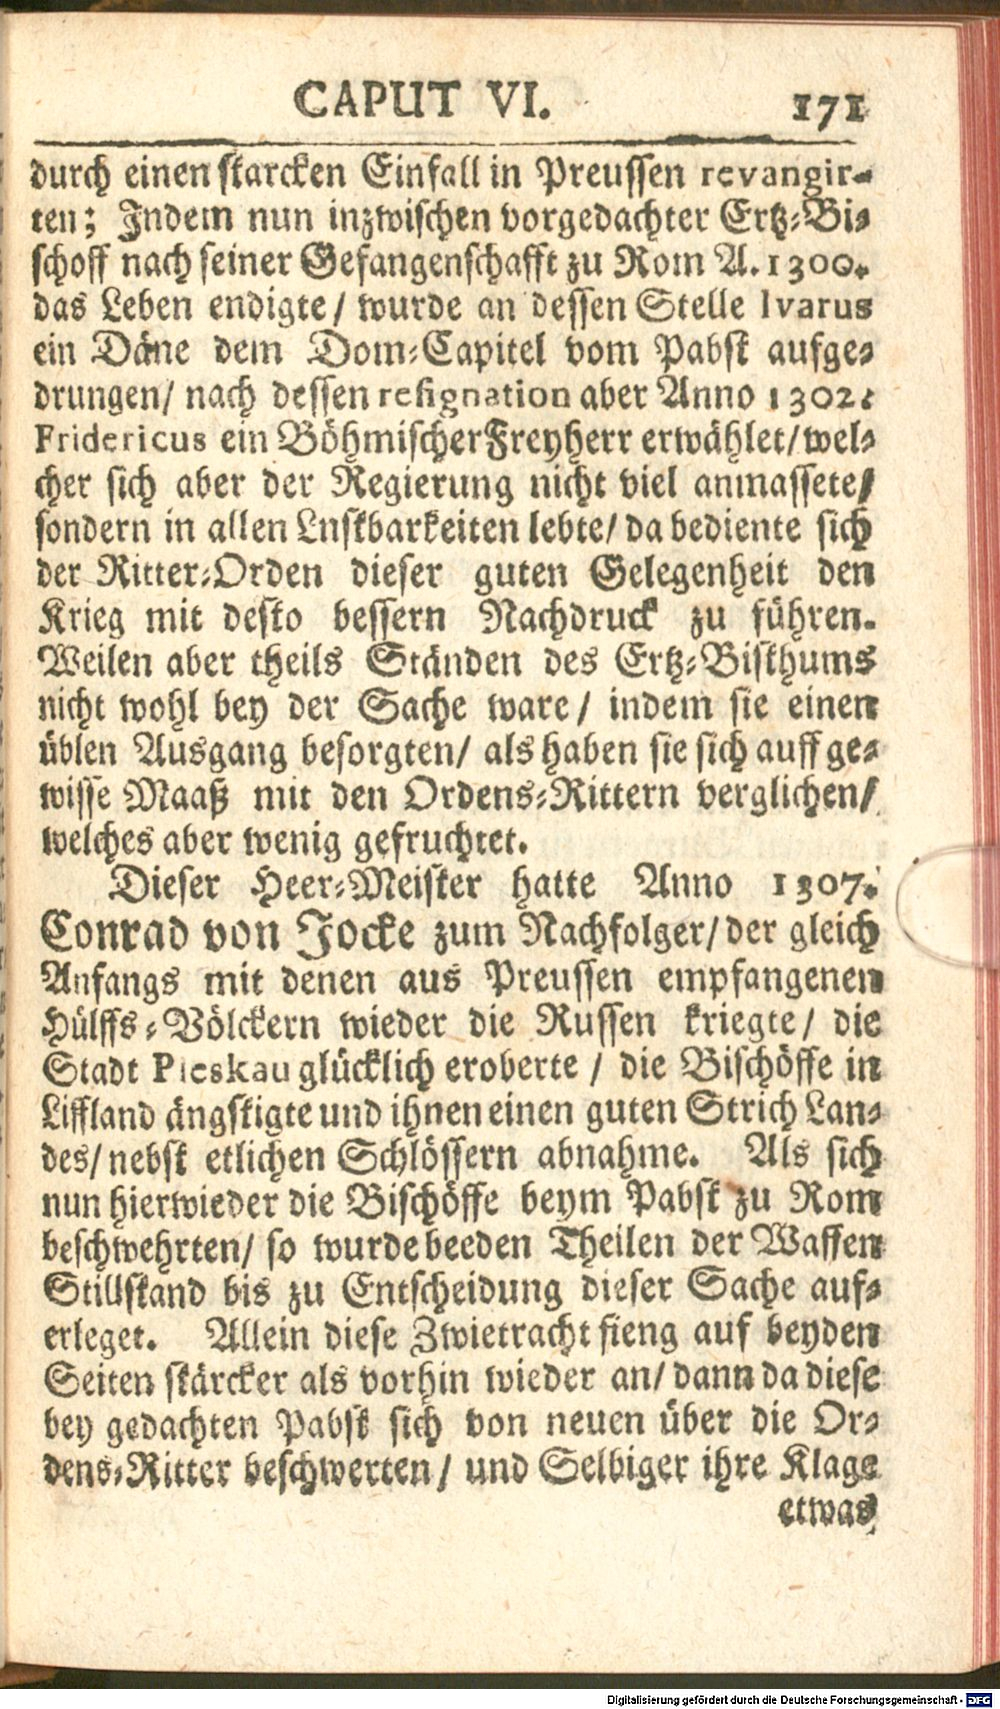 CAPUT VI. 171
durch einen starcken Einfall in Preussen revangir-
ten; Indem nun inzwischen vorgedachter Ertz-Bi-
schoff nach seiner Gefangenschafft zu Rom A. 1300.
das Leben endigte/ wurde an dessen Stelle Ivarus
ein Däne dem Dom-Capitel vom Pabst aufge-
drungen/ nach dessen resignation aber Anno 1302.
Fridericus ein Böhmischer Freyherr erwählet/ wel-
cher sich aber der Regierung nicht viel anmassete/
sondern in allen Lnstbarkeiten lebte/ da bediente sich
der Ritter-Orden dieser guten Gelegenheit den
Krieg mit desto bessern Nachdruck zu führen.
Weilen aber theils Ständen des Ertz-Bisthums
nicht wohl bey der Sache ware/ indem sie einen
üblen Ausgang besorgten/ als haben sie sich auff ge-
wisse Maaß mit den Ordens-Rittern verglichen/
welches aber wenig gefruchtet.
Dieser Heer-Meister hatte Anno 1307.
Conrad von Jocke zum Nachfolger/ der gleich
Anfangs mit denen aus Preussen empfangenen
Hülffs-Völckern wieder die Russen kriegte/ die
Stadt Pleskau glücklich eroberte/ die Bischöffe in
Liffland ängstigte und ihnen einen guten Strich Lan-
des/ nebst etlichen Schlössern abnahme. Als sich
nun hierwieder die Bischöffe beym Pabst zu Rom
beschwehrten/ so wurde beeden Theilen der Waffen
Stillstand bis zu Entscheidung dieser Sache auf-
erleget. Allein diese Zwietracht fieng auf beyden
Seiten stärcker als vorhin wieder an/ dann da diese
bey gedachten Pabst sich von neuen über die Or-
dens-Ritter beschwerten/ und Selbiger ihre Klage
etwas
Digitalisierung gefördert durch die Deutsche Forschungsgemeinschaft - DFG